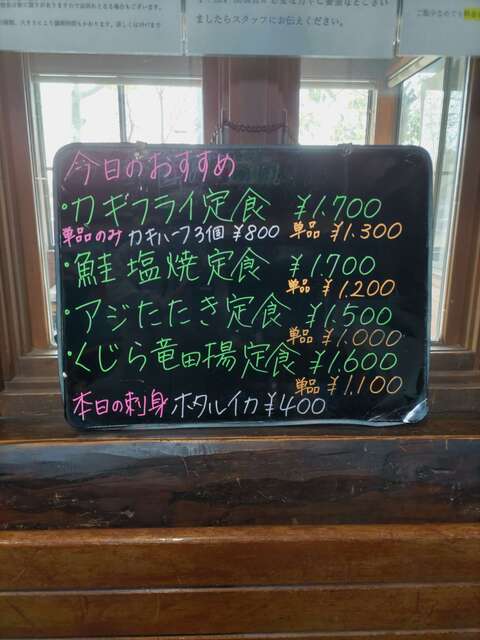 ましたらスタッフにお伝えください。
今日のおすすめ
・カキフライ定食 ¥1.700
単品のみ カキハーフ3個 ¥800 単品 ¥1.300
・鮭塩焼定食 ¥1.700
単品 ¥1.200
・アジたたき定食 ¥1.500
単品 ¥1.000
・くじら竜田揚定食 ¥1.600
単品 ¥1.100
本日の刺身 ホタルイカ ¥400